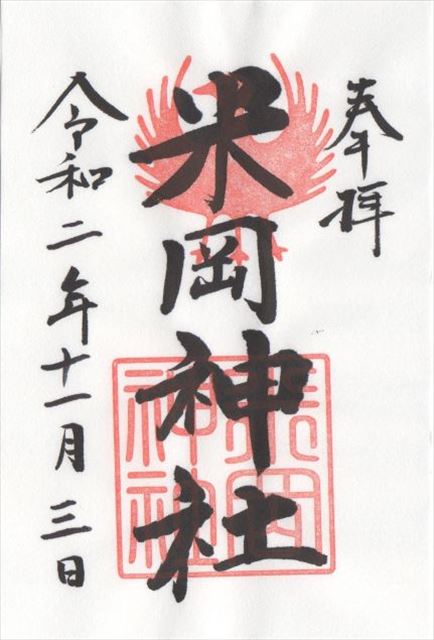 奉拝
米岡神社
令和二年十一月三日
米岡
神社